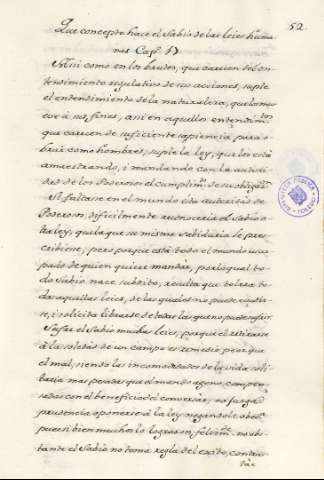 52
Que concepto hace el Sabio de las leies huma
nas Cap. 17
Assi como en los brutos, que carecen del en-
tendimiento regulativo de sus acciones, suple
el entendimiento de la naturaleza, que los mu
eve à sus fines, assi en aquellos entendimien.tos
que carecen de suficiente sapiencia para o-
brar como hombres, suple la ley, que los està
amaestrando, i mandando con la autori
dad de los Poderosos el cumplim.to de su obligaz.on
Si faltase en el mundo esta autoridad de
Poderosos, dificilmente reconoceria el Sabio o-
tra ley, que la que su misma Sabiduria le pre
scribiese; pero porque està todo el mundo ocu
pado de quien quiere mandar, por lo qual to-
do Sabio nace subdito, resulta que tolera to-
das aquellas leies, de las quales no puede exsimir
se, i solicita librarse de todas las que no puede sufrir.
Sufre el Sabio muchas leies, porque el retirarse
à la soledad de un campo es remedio peor que
el mal, siendo las incomodidades de la vida soli
taria mas pesadas que el mando ageno, compen-
sadas con el beneficio del conversar, no juzga
prudencia oponerse à la ley negandole obed.a
pues si bien muchos lo logran felizm.te no obs
tante el Sabio no toma regla del exito, contin
BIBLIOTECA PUBLICA
TOLEDO